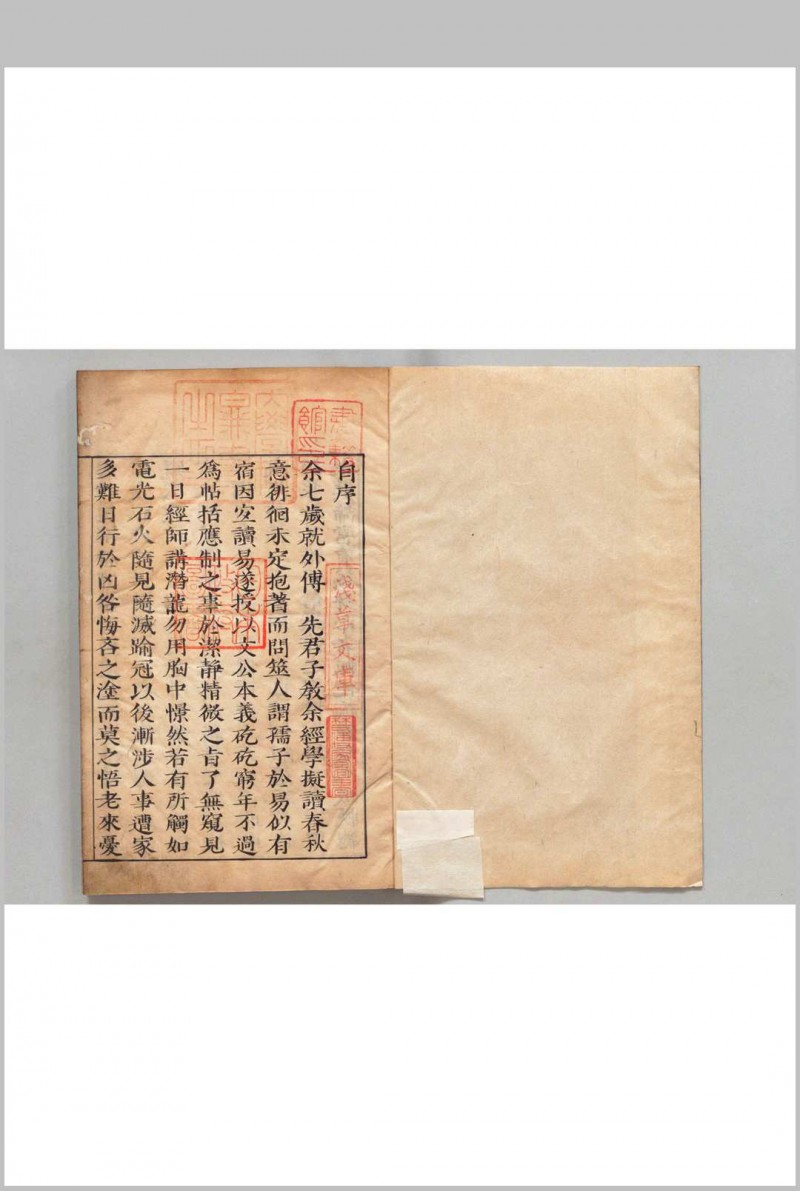 自序
余七歲就外傅　先君子敎余經學擬讀春秋
意徘徊未定抱蓍而問筮人謂孺子於易似有
宿因宜讀易遂授以文公本義矻矻窮年不過
爲帖括應制之事於潔靜精微之旨了無窺見
一日經師講潛龍勿用胸中憬然若有所觸如
電光石火隨見隨滅踰冠以後漸涉人事遭家
多難日行於凶咎悔吝之塗而莫之悟老來憂